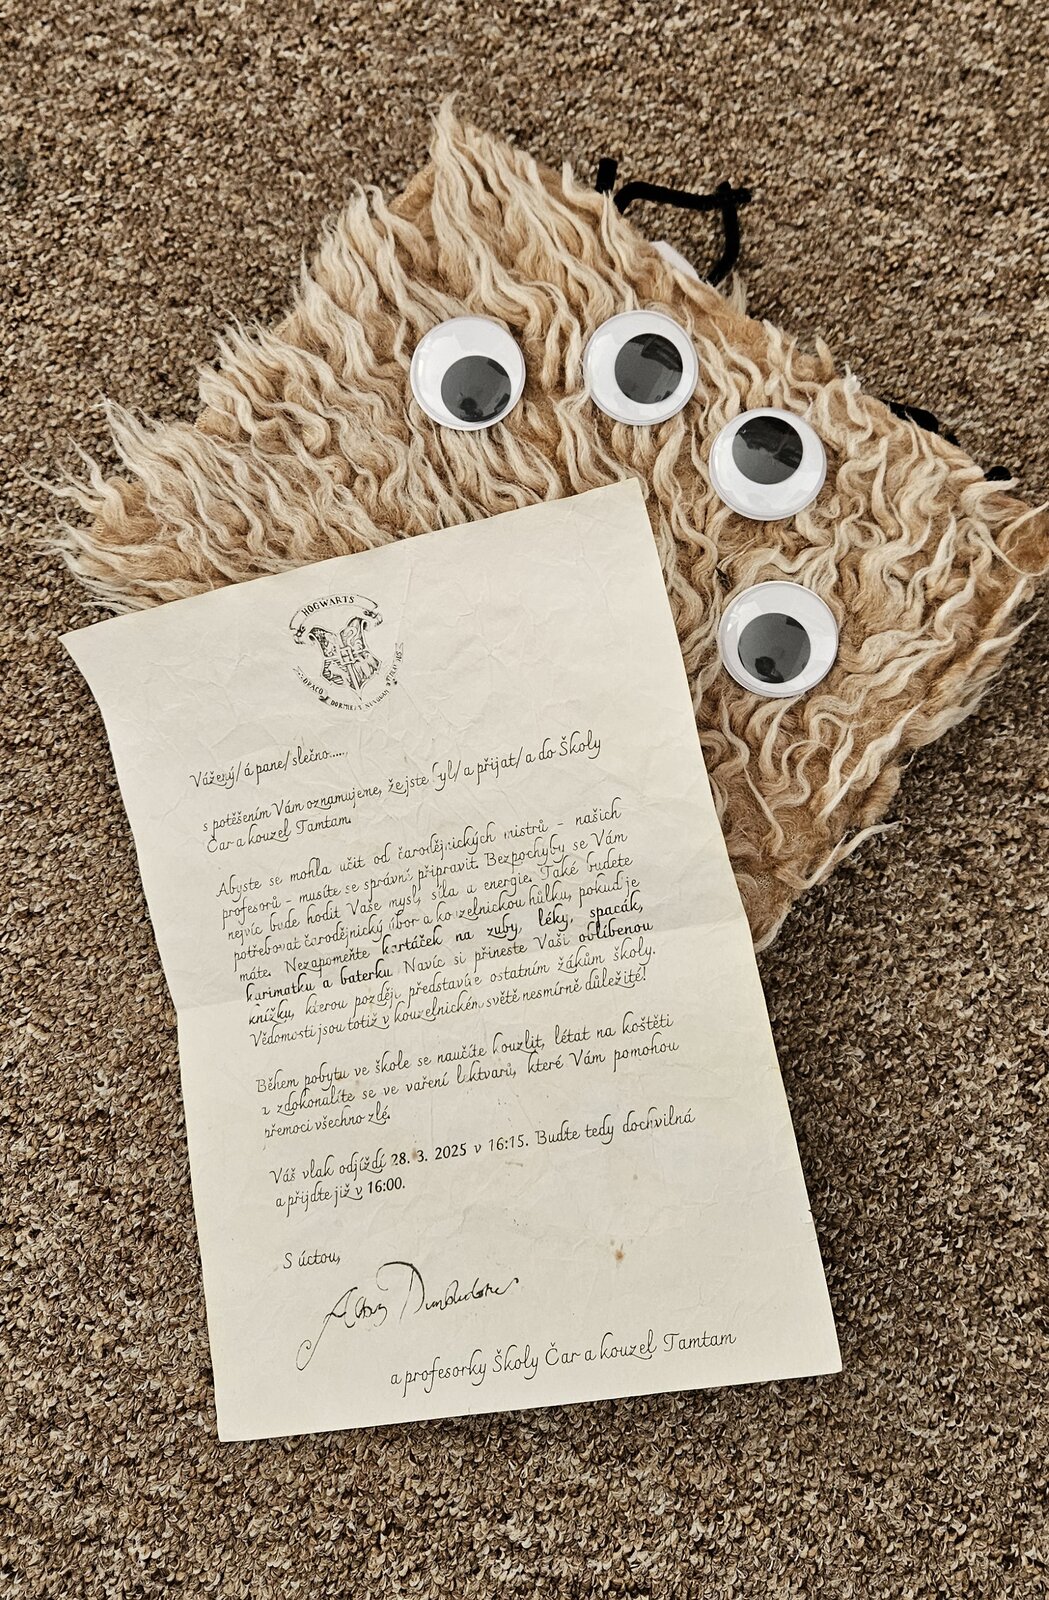 HOGWARTS
DRACO DORMIENS NUNQUAM TITILLANDUS
Vážený/á pane/slečno.....,
s potěšením Vám oznamujeme, že jste byl/a přijat/a do Školy
Čar a kouzel Tamtam.
Abyste se mohla učit od čarodějnických mistrů - našich
profesorů - musíte se správně připravit. Bezpochyby se Vám
nejvíc bude hodit Vaše mysl, síla a energie. Také budete
potřebovat čarodějnický úbor a kouzelnickou hůlku, pokud je
máte. Nezapomeňte kartáček na zuby, léky, spacák,
karimatku a baterku. Navíc si přineste Vaši oblíbenou
knížku, kterou později představíte ostatním žákům školy.
Vědomosti jsou totiž v kouzelnickém světě nesmírně důležité!
Během pobytu ve škole se naučíte kouzlit, létat na koštěti
a zdokonalíte se ve vaření lektvarů, které Vám pomohou
přemoci všechno zlé.
Váš vlak odjíždí 28. 3. 2025 v 16:15. Buďte tedy dochvilná
a přijďte již v 16:00.
S úctou,
Albus Dumbledore
a profesorky Školy Čar a kouzel Tamtam